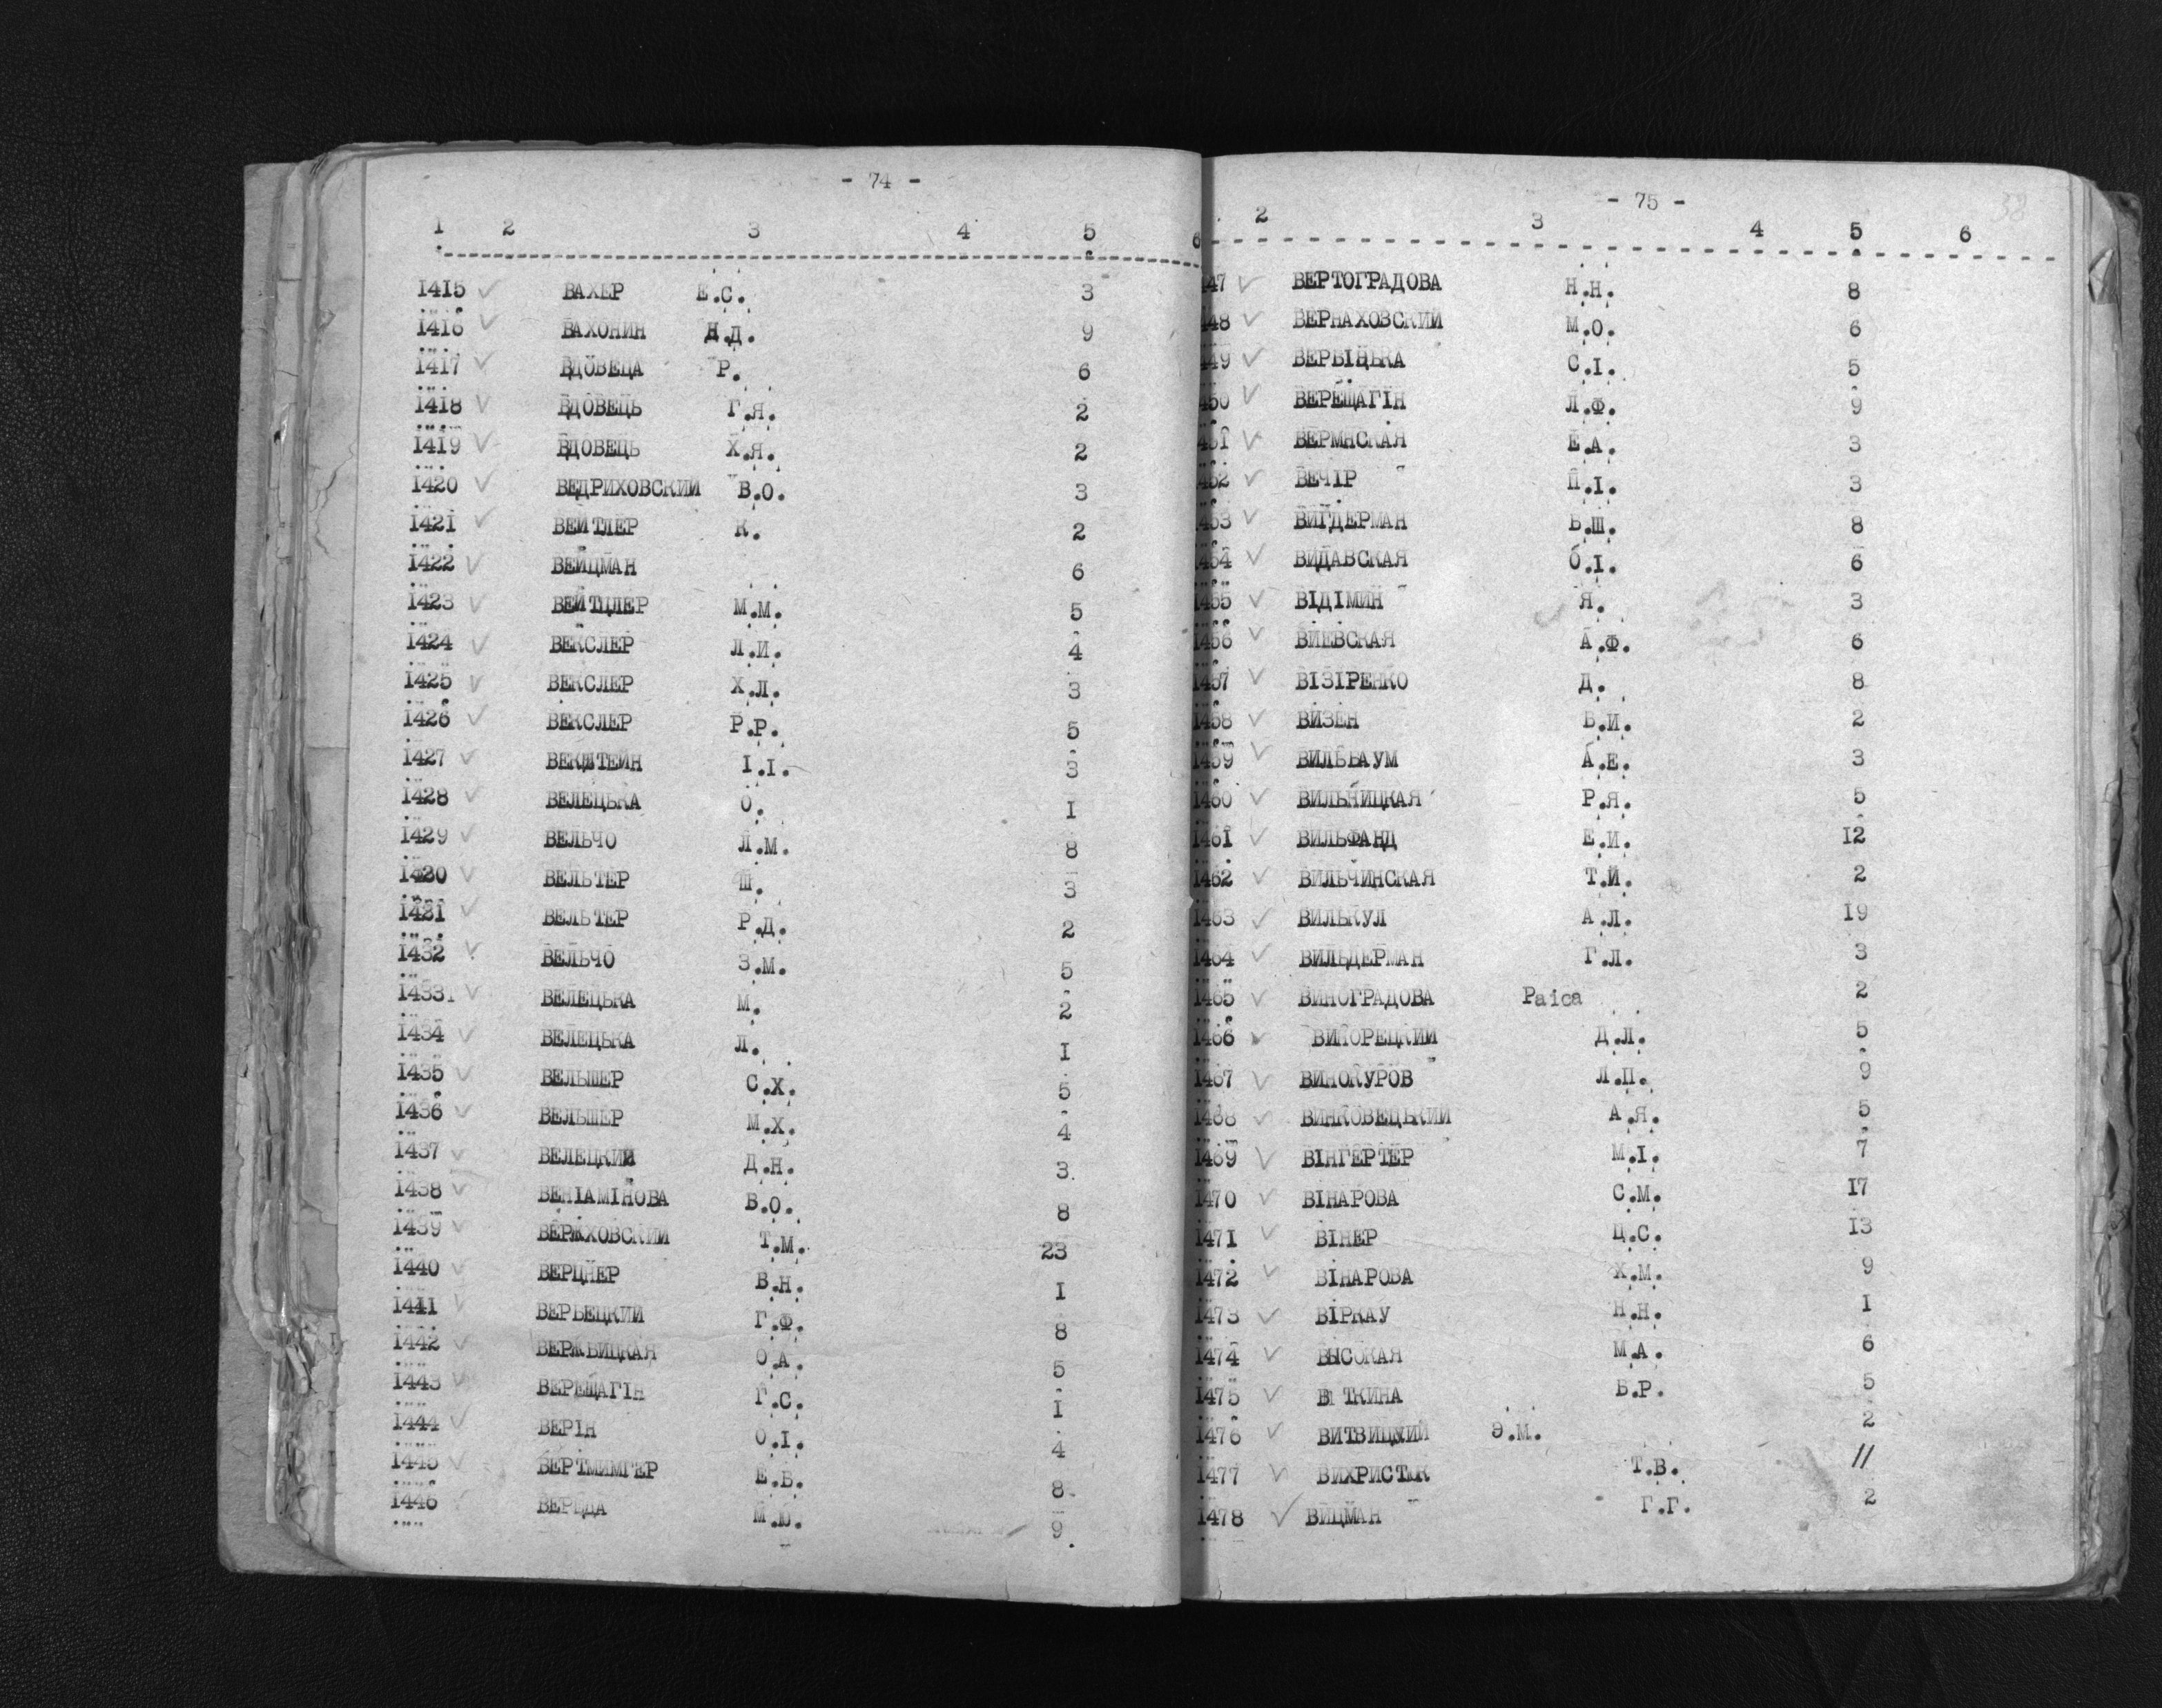 - 74 -
1 2 3 4 5 6
1415 ВАХЕР Е.С. 3
1416 ВАХОНИН Н.Д. 9
1417 ВДОВЕЦА Р. 6
1418 ВДОВЕЦЬ Г.Я. 2
1419 ВДОВЕЦЬ Х.Я. 2
1420 ВЕДРИХОВСКИИ В.О. 3
1421 ВЕИТЛЕР К. 2
1422 ВЕЙЦМАН 6
1423 ВЕЙТЦЛЕР М.М. 5
1424 ВЕКСЛЕР Л.И. 4
1425 ВЕКСЛЕР Х.Л. 3
1426 ВЕКСЛЕР Р.Р. 5
1427 ВЕКШТЕЙН І.І. 3
1428 ВЕЛЕЦЬКА О. 1
1429 ВЕЛЬЧО Л.М. 8
1420 ВЕЛЬТЕР Ш. 3
1421 ВЕЛЬТЕР Р.Д. 2
1432 ВЕЛЬЧО З.М. 5
1433 ВЕЛЕЦЬКА М. 2
1434 ВЕЛЕЦЬКА Л. 1
1435 ВЕЛЬШЕР С.Х. 5
1436 ВЕЛЬШЕР М.Х. 4
1437 ВЕЛЕЦКИЙ Д.Н. 3
1438 ВЕНІАМІНОВА В.О. 8
1439 ВЕРЖХОВСКИИ Т.М. 23
1440 ВЕРЦНЕР В.Н. 1
1441 ВЕРБЕЦКИИ Г.Ф. 8
1442 ВЕРЖБИЦКАЯ О.А. 5
1443 ВЕРЕЩАГІН Г.С. 1
1444 ВЕРІН О.І. 4
1445 ВЕРТМИМГЕР Е.Б. 8
1446 М.Ю. 9
- 75 -
2 3 4 5 6
47 ВЕРТОГРАДОВА Н.Н. 8
48 ВЕРНАХОВСКИИ М.О. 6
49 ВЕРБІЦЬКА С.І. 5
450 ВЕРЕЩАГІН Л.Ф. 9
451 ВЕРМНСКАЯ Е.А. 3
452 ВЕЧІР П.І. 3
453 ВИГДЕРМАН Б.Ш. 8
454 ВИДАВСКАЯ О.І. 6
1455 ВІДІМИН Я. 3
1456 ВИЕВСКАЯ А.Ф. 6
1457 ВІЗІРЕНКО Д. 8
1458 ВИЗЕН Б.И. 2
1459 ВИЛЬБАУМ А.Е. 3
1460 ВИЛЬНИЦКАЯ Р.Я. 5
1461 ВИЛЬФАНД Е.И. 12
1462 ВИЛЬЧИНСКАЯ Т.И. 2
1463 ВИЛЬКУЛ А.Л. 19
1464 ВИЛЬДЕРМАН Г.Л. 3
1465 ВИНОГРАДОВА Раіса 2
1466 Д.Л. 5
1467 ВИНОКУРОВ Л.П. 9
1468 ВИНКОВЕЦЬКИИ А.Я. 5
1469 ВІНГЕРТЕР М.І. 7
1470 ВІНАРОВА С.М. 17
1471 ВІНЕР Ц.С. 13
1472 ВІНАРОВА Х.М. 9
1473 ВІРКАУ Н.Н. 1
1474 ВЫСОКАЯ М.А. 6
1475 ВІТКИНА Б.Р. 5
1476 ВИТВИЦКИЙ Э.М. 2
1477 ВИХРИСТЮК Т.В. 11
1478 ВИЦМАН Г.Г. 2